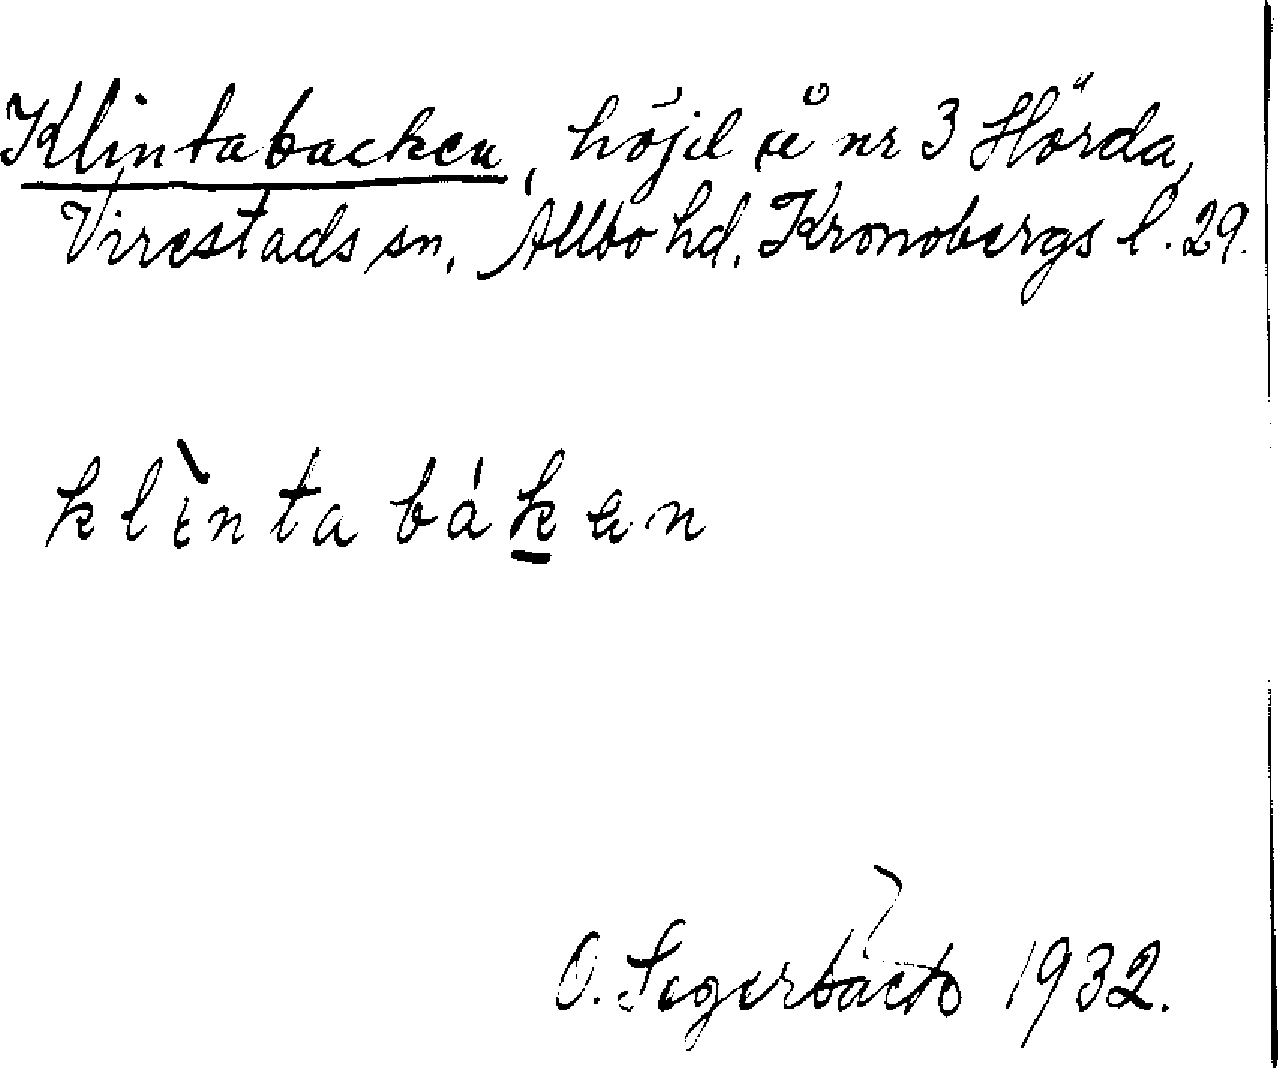 Klintabacken, höjd å nr 3 Hörda,
Virestads sn, Allbo hd, Kronobergs l. 29.
klìntabáken
O. Segerbäck 1932.